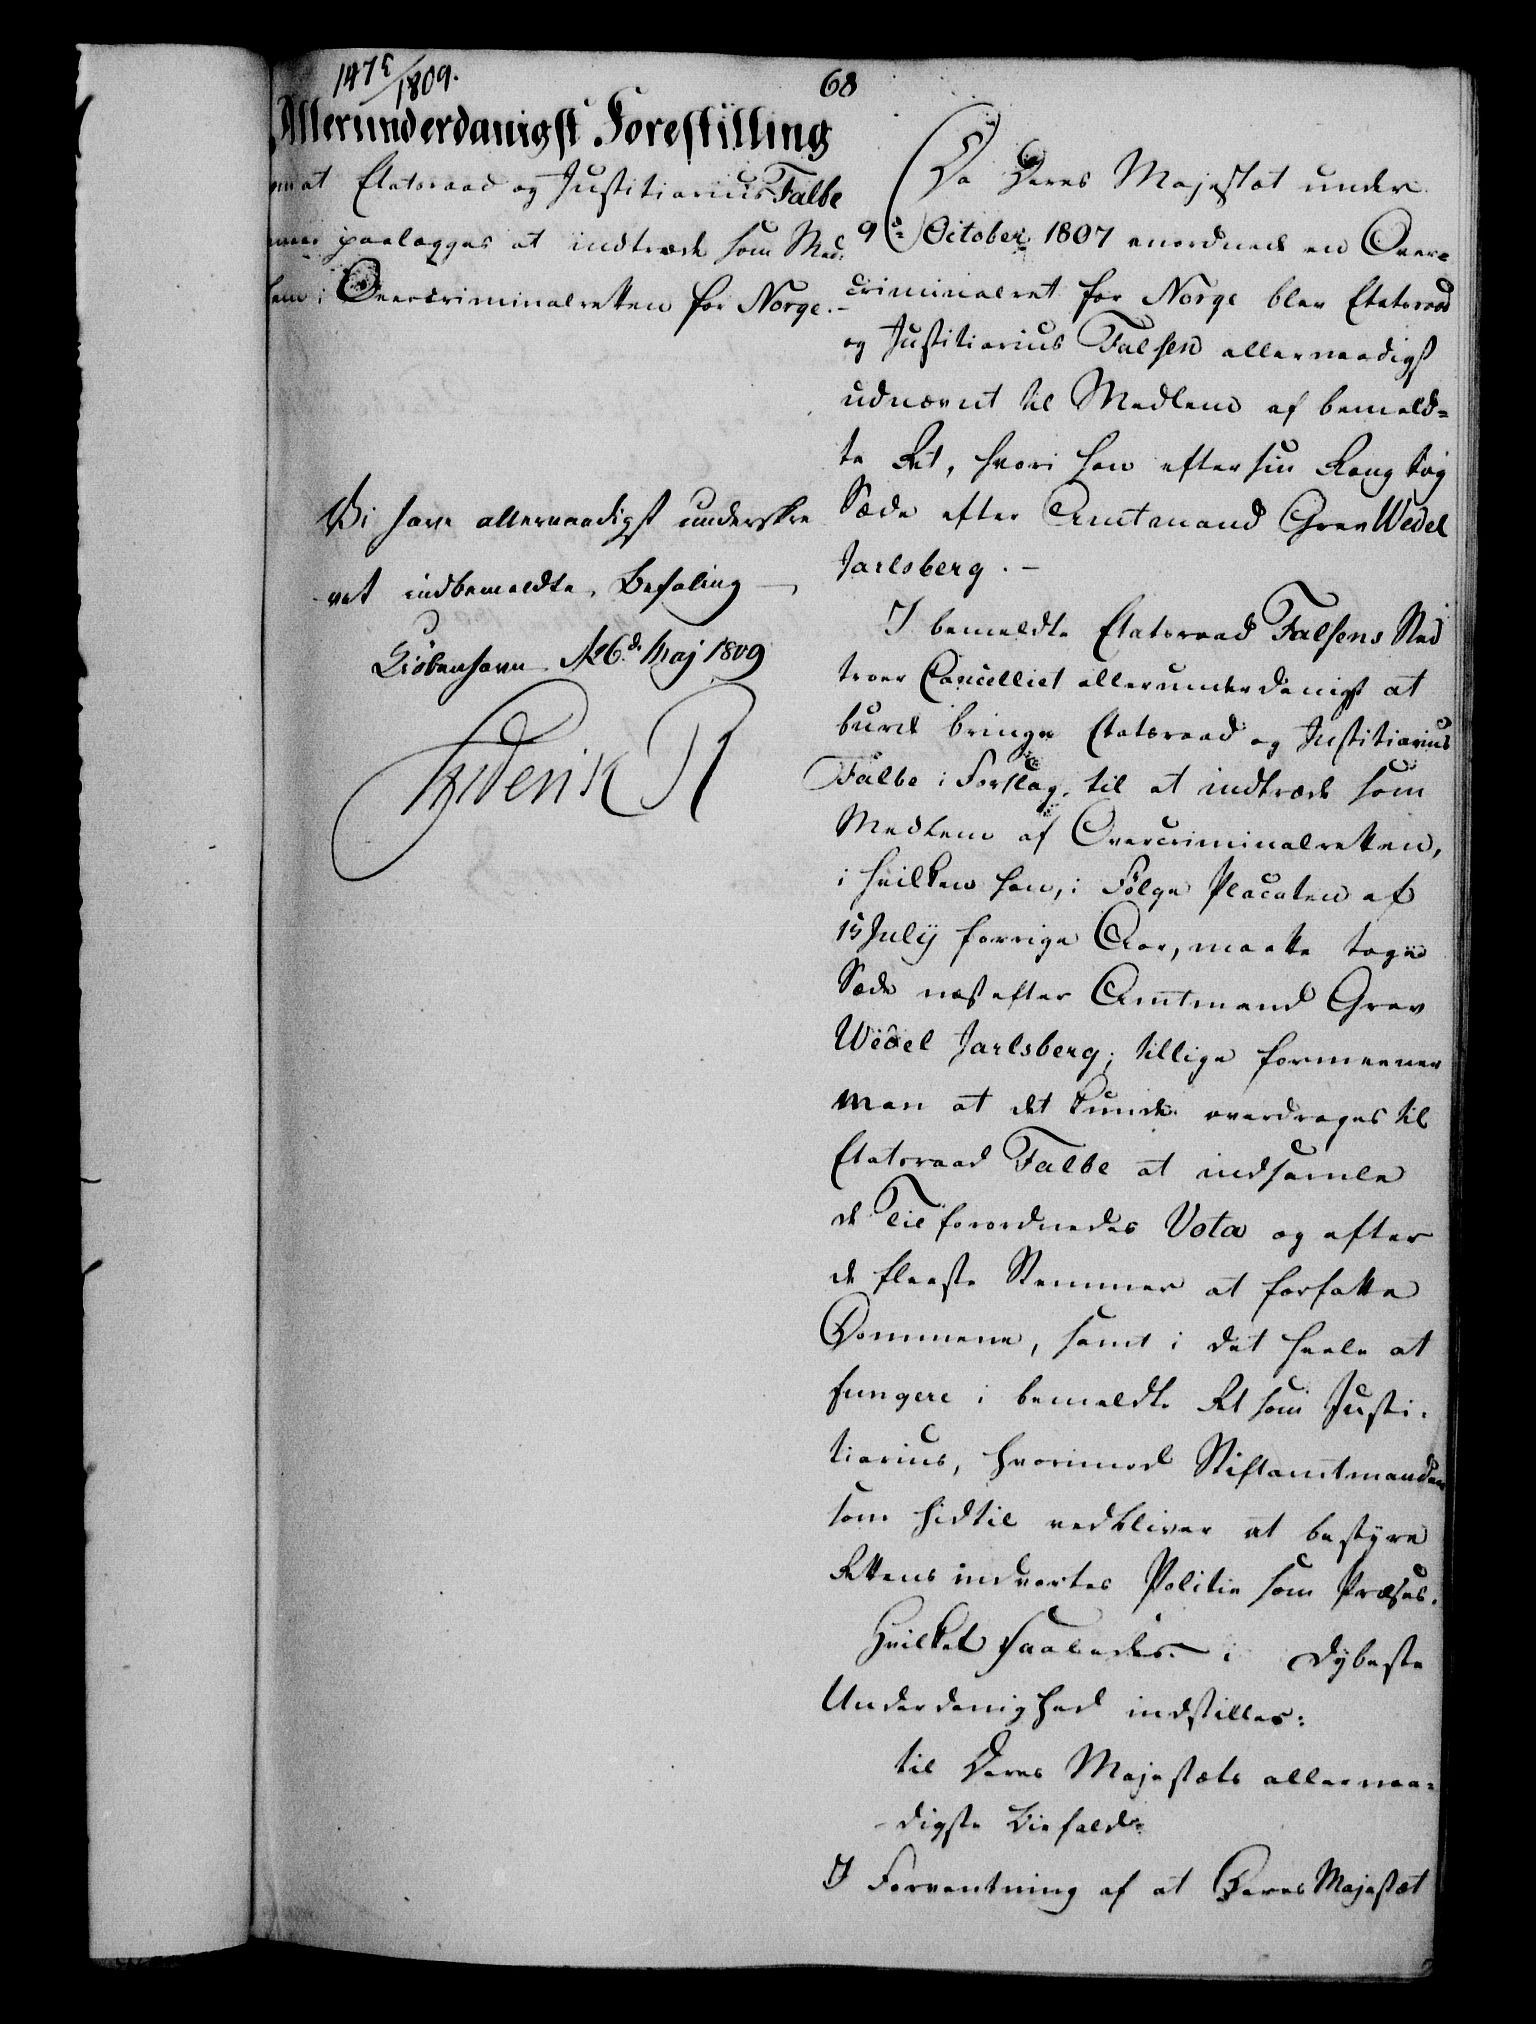 147 C/1809.
68
Allerunderdanigst Forestilling
om at Etatsraad og Justitiarius Falbe
maae paalægges at indtræde som Med-
lem i Overcriminalretten for Norge.
Vi have allernaadigst underskre
vet indbemeldte Befaling
Kiøbenhavn d. 26de Maj 1809
Frederik R
Da Deres Majestæt under
9de October 1807 anordnede en Over-
criminalret for Norge blev Etatsraad
og Justitiarius Falsen allernaadigst
udnævnt til Medlem af bemeld-
te Ret, hvori han efter sin Rang tog
Sæde efter Amtmand Grev Wedel
Jarlsberg. –
I bemeldte Etatsraad Falsens Sted
troer Cancelliet allerunderdanigst at
burde bringe Etatsraad og Justitiarius
Falbe i Forslag, til at indtræde som
Medlem af Overcriminalretten,
i hvilken han, i Følge Placaten af
15 Julij forrige Aar, maatte tage
Sæde næst efter Amtmand Grev
Wedel Jarlsberg; tillige formeener
man at det kunde overdrages til
Etatsraad Falbe at indsamle
de Tilforordnedes Vota og efter
de fleeste Stemmer at forfatte
Dommene, samt i det heele at
fungere i bemeldte Ret som Justi-
tiarius, hvorimod Stiftamtmanden
som hidtil vedbliver at bestyre
Rettens indvortes Politie som Præses.
Hvilket saaledes i dybeste
Underdanighed indstilles:
til Deres Majestæts allernaa-
digste Biefald.
I Forventning af at Deres Majestæt